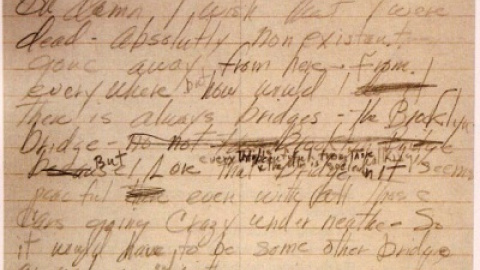 Oh damn I wish that I were
dead - absolutly nonexistant
gone away from here - from
everywhere but how would I
There is always bridges - the Brooklyn
bridge - no not the Brooklyn Bridge
everything is beautiful from there
But I love that bridge it seems
peaceful even with all those
cars going crazy underneathe - So
it would have to be some other bridge